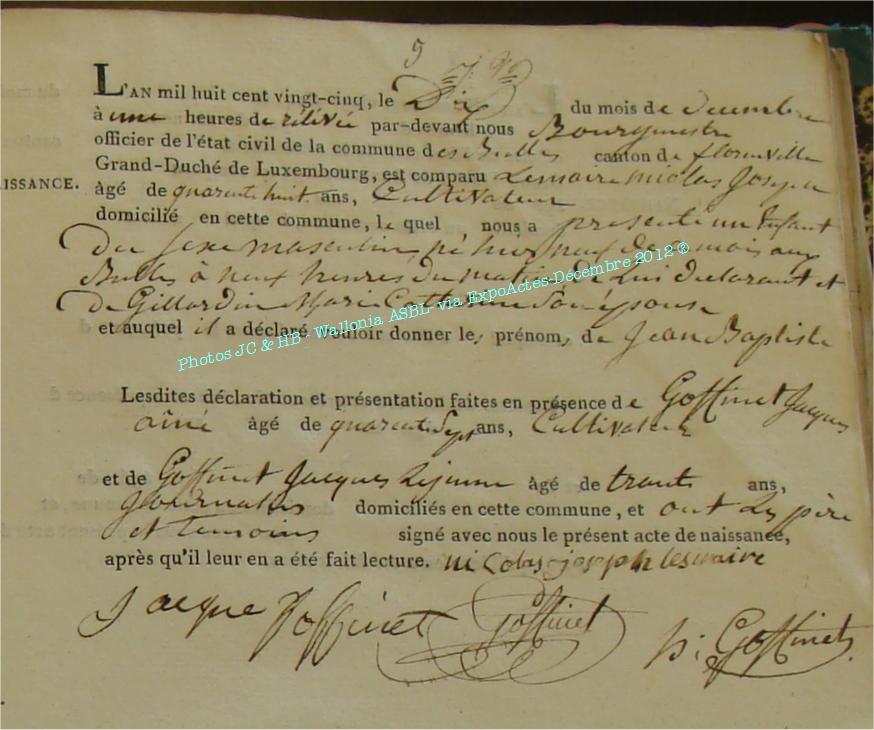 5
L'AN mil huit cent vingt-cinq, le Dix du mois de decembre
à une heures de rélévée par-devant nous Bourgmestre
officier de l'état civil de la commune des Bulles canton de florenville
NAISSANCE.
Grand-Duché de Luxembourg, est comparu Lemaire nicolas Joseph
âgé de quarente huit ans, Cultivateur
domicilié en cette commune, le quel nous a presenté un Enfant
du sexe masculin, né hier neuf de ce mois aux
Bulles à neuf heures du matin de Lui declarant et
de Gillardin Marie Catherine son épouse
et auquel il a déclaré vouloir donner les prénoms de Jean Baptiste
Photos JC & HB - Wallonia ASBL- via ExpoActes-Décembre 2012 ®
Lesdites déclaration et présentation faites en présence de Goffinet Jacques
aîné âgé de quarente sept ans, Cultivateur
et de Goffinet Jacques Lejeune âgé de trente ans,
Journalier domiciliés en cette commune, et ont Les père
et temoins signé avec nous le présent acte de naissance,
après qu'il leur en a été fait lecture. nicolas joseph lesmaire
Jacque Goffinet Goffinet Goffinet